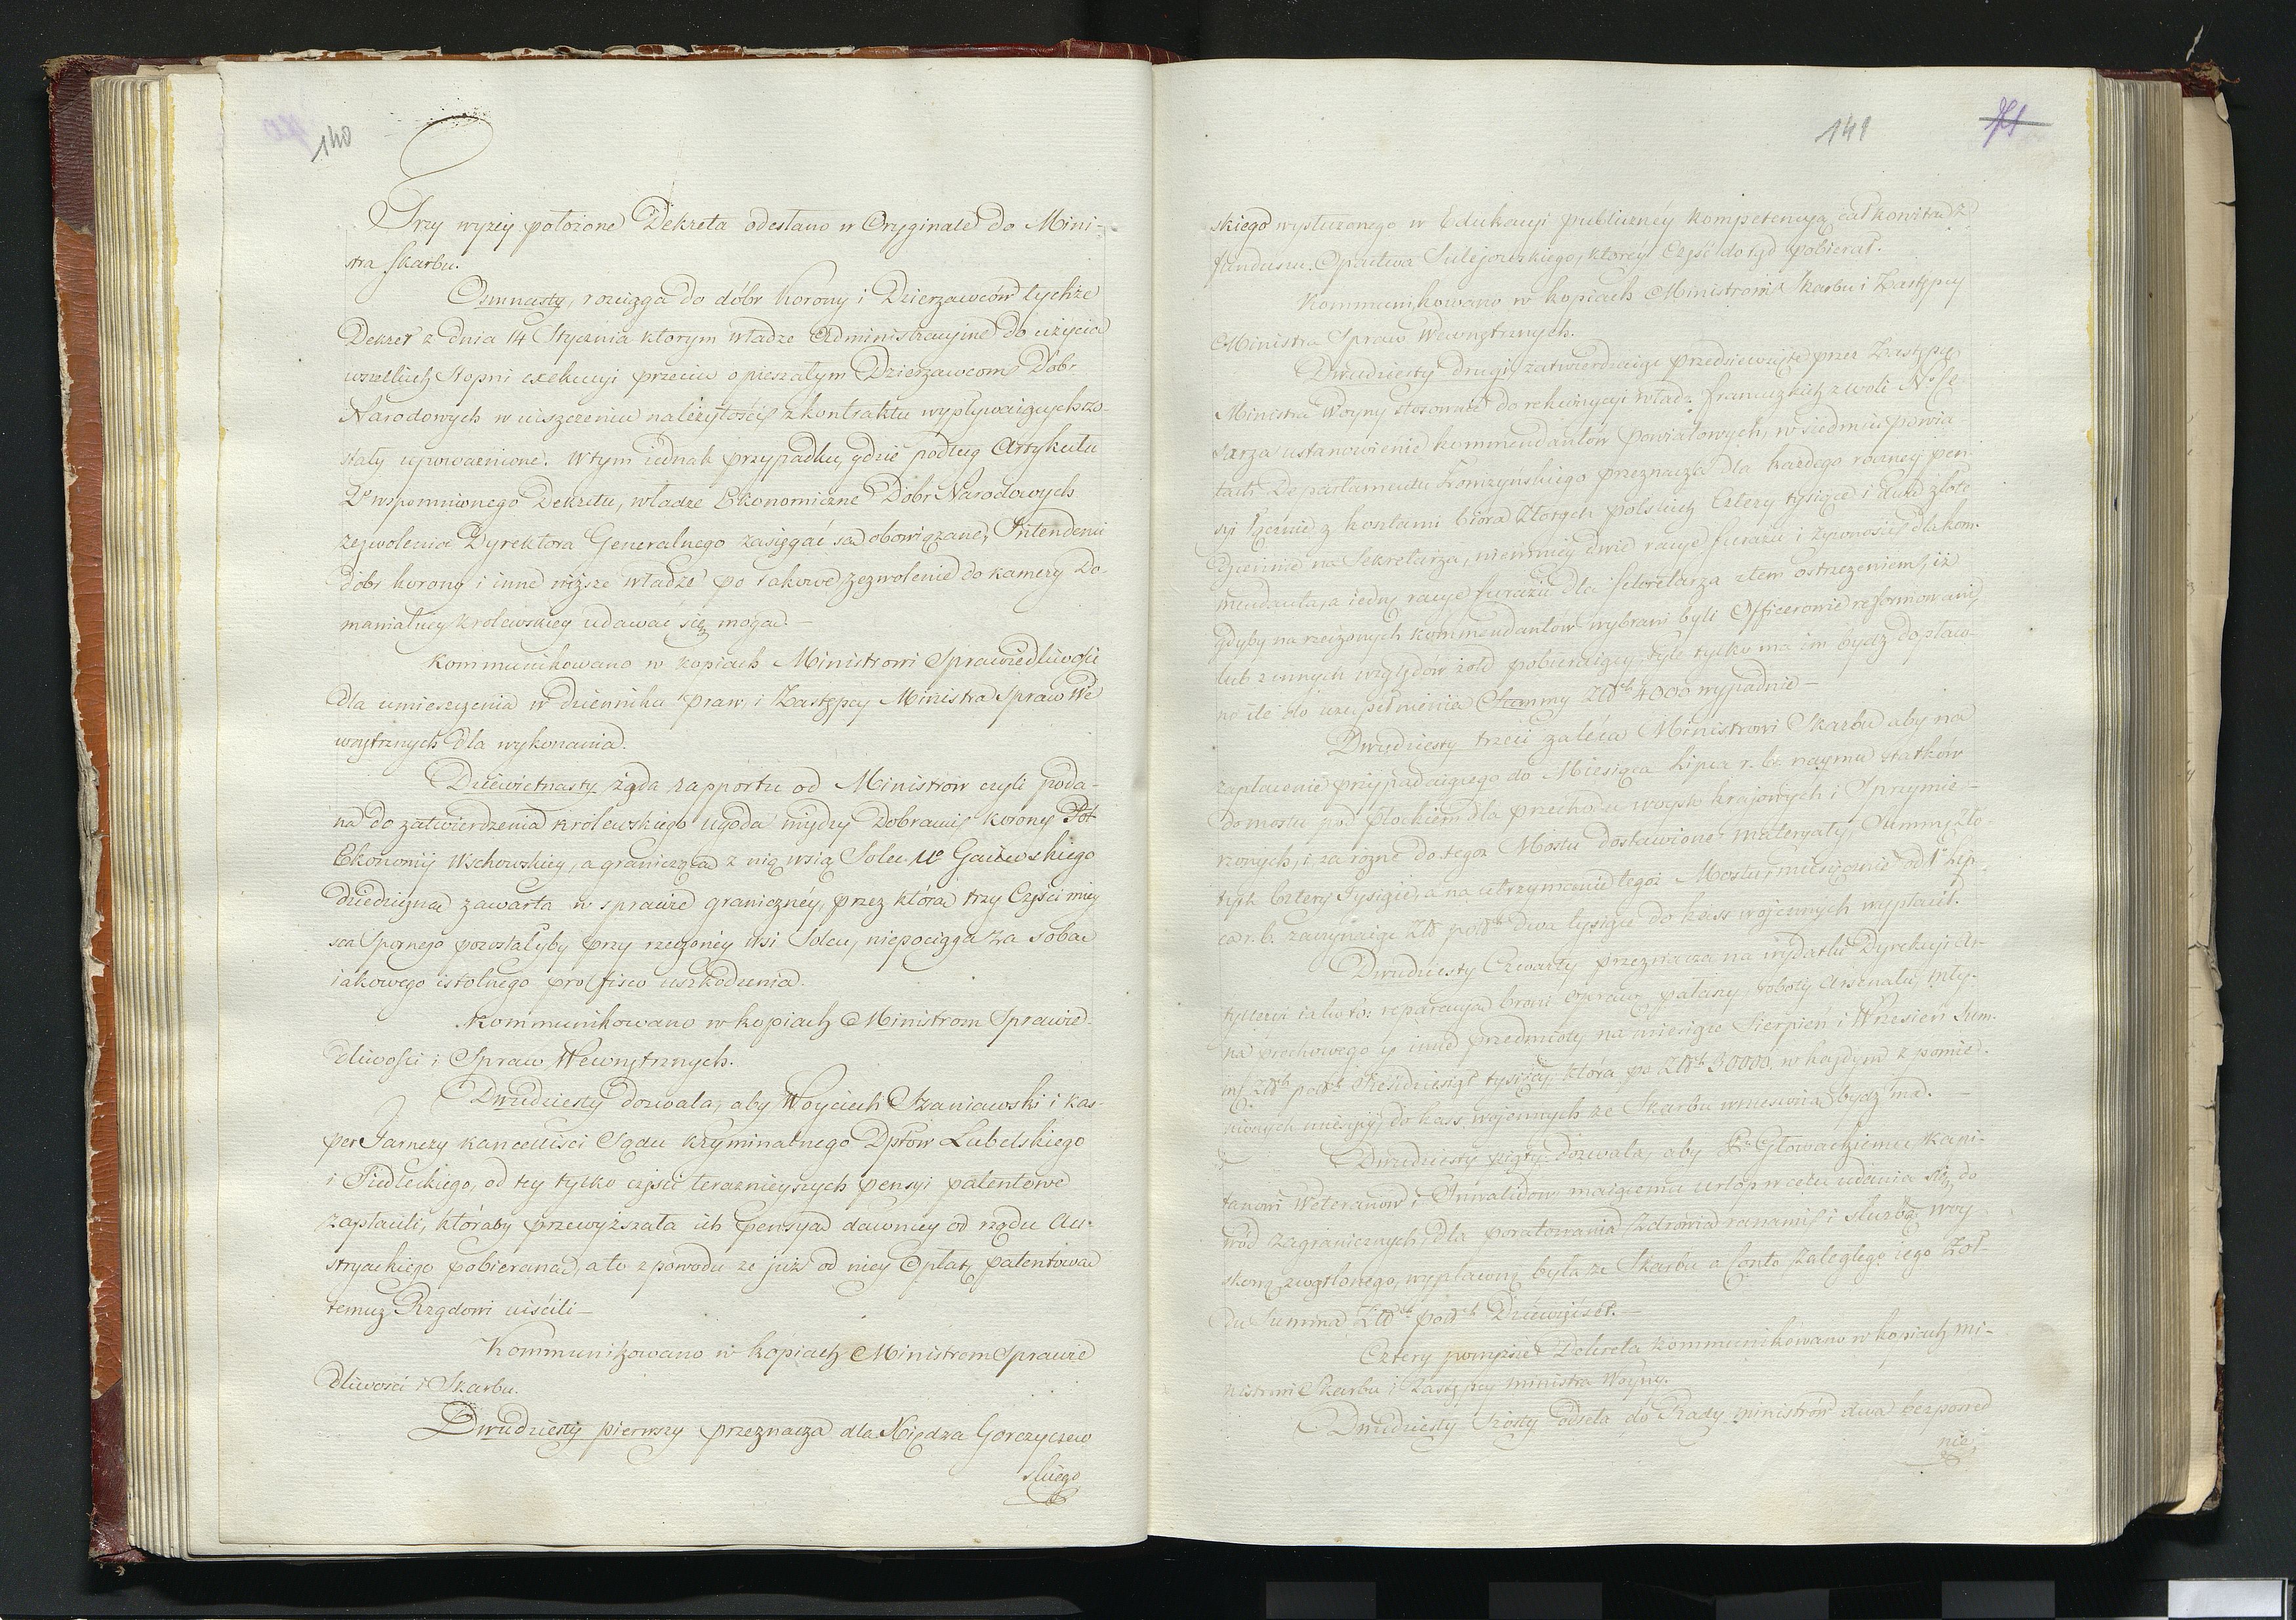 140
Trzy wyzey położone Dekreta odesłano w Oryginale do Mini-
stra Skarbu.
Osmnasty, rozciąga do dóbr korony i Dzierzawców tychże
Dekret z dnia 14 Stycznia ktorym władze Administracyine do użycia
wszelkich Stopni exekucyi przeciw opieszałym Dzierzawcom Dóbr
Narodowych w uiszczeniu należytości z kontraktu wypływaiących zo-
stały upoważnione. W tym iednak przypadku, gdzie podług Artykułu
wspomnionego Dekretu, władze Ekonomiczne Dobr Narodowych
zezwolenia Dyrektora Generalnego zasięgać są obowiązane, Intendenci
dóbr korony i inne niższe władze po takowe zezwolenie do kamery Do-
manialney Królewskiey udawać się mogą.—
Kommunikowano w kopiach Ministrowi Sprawiedliwości
dla umieszczenia w dzienniku praw, i Zastępcy Ministra Spraw We
wnętrznych dla wykonania.
Dziewiętnasty żąda rapportu od Ministrow czyli poda-
na do zatwierdzenia królewskiego ugoda między Dobrami korony
Ekonomij Wschowskiey, a graniczącą z nią wsią Solec Gaiewskiego
dziedziczną zawarta w sprawie graniczney, przez którą trzy Części miey
sca Spornego pozostałyby przy rzeczoney wsi Solcu, niepociąga za sobą
iakowego istotnego pro fisco uszkodzenia.
Kommunikowano w kopiach Ministrom Sprawie-
dliwości i Spraw Wewnętrznych.
Dwudziesty dozwala, aby Woyciech Szaniawski i Kas-
per Jarnezy kancelliści Sądu kryminalnego Dptow Lubelskiego
i Siedleckiego, od tey tylko części teraznieyszych pensyi patentowe
zapłacili, któraby przewyższała ich pensyą dawniey od rządu Au-
stryackiego pobieraną, a to z powodu że już od niey Opłatę patentową
temuż Rządowi uiścili—
Kommunikowano w kopiach Ministrom Sprawie
dliwości i Skarbu.
Dwudziesty pierwszy przeznacza dla Xiędza Gorczyczew
skiego
141
71
skiego wysłużonego w Edukacyi publiczney kompetencyą całkowitą z
funduszu Opactwa Sulejowskiego, ktorey Część do tąd pobierał.
Kommunikowano w kopiach Ministrowi Skarbu i Zastępcy
Ministra Spraw Wewnętrznych.
Dwudziesty drugi zatwierdzaiąc przedsięwzięte przez Zastępcę
Ministra Woyny stosownie do rekwizycyi władz francuzkich z woli N. Ce-
sarza ustanowienie kommendantów powiatowych, w siedmiu powia-
tach Departamentu Łomzynskiego przeznacza dla każdego roczney pen-
syi łącznie z kosztami biora Złotych polskich Cztery tysiące i dwa złote
dziennie na Sekretarza, niemniey dwie racye furażu i żywności dla kom-
mendanta, a iednę racyę furażu dla Sekretarza z tem ostrzeżeniem, iż
gdyby na rzeczonych kommendantów wybrani byli Officerowie reformowani,
lub z innych względow żołd pobieraiący, tyle tylko ma im bydz dopłaco-
no ile do uzupełnienia Summy Złtch 4000 wypadnie—
Dwudziesty trzeci zaleca Ministrowi Skarbu aby na
zapłacenie przypadaiącego do Miesiąca Lipca r. b. naymu statków
do mostu pod Płockiem dla przechodu woysk krajowych i Sprzymie-
rzonych, i za różne do tegoż Mostu dostawione materyały, Summę Zło-
tych Cztery Tysiące, a na utrzymanie tegoż Mostu miesięcznie od 1 Lip-
ca r. b. zaczynaiąc Złt polch dwa tysiące do kass wojennych wypłacił.
Dwudziesty Czwarty przeznacza na wydatki Dyrekcyi Ar-
tylleryi iako to: reparacyą broni, pałaszy, roboty Arsenału, mły-
na prochowego i inne przedmioty na miesiące Sierpień i Wrzesień Sum-
mę Złtch polch Sześćdziesiąt tysięcy, która po Złtch 30000 w każdym z pomie-
nionych miesięcy, do kass wojennych ze Skarbu wniesioną bydź ma.—
Dwudziesty piąty dozwala, aby P. Głowackiemu Kapi-
tanowi Weteranow i Inwalidow maiącemu urlop w celu udania się do
wód zagranicznych, dla poratowania zdrowia ranami i służbą woy
skową zwątlonego, wypłacona była ze Skarbu a Conto zaległego iego Żoł-
du Summa Złtch polch Dziewięćset.—
Cztery powyższe Dekreta kommunikowano w kopiach Mi-
nistrowi Skarbu i Zastępcy Ministra Woyny.
Dwudziesty Szósty odseła do Rady Ministrów dwa bezpośred
nie,